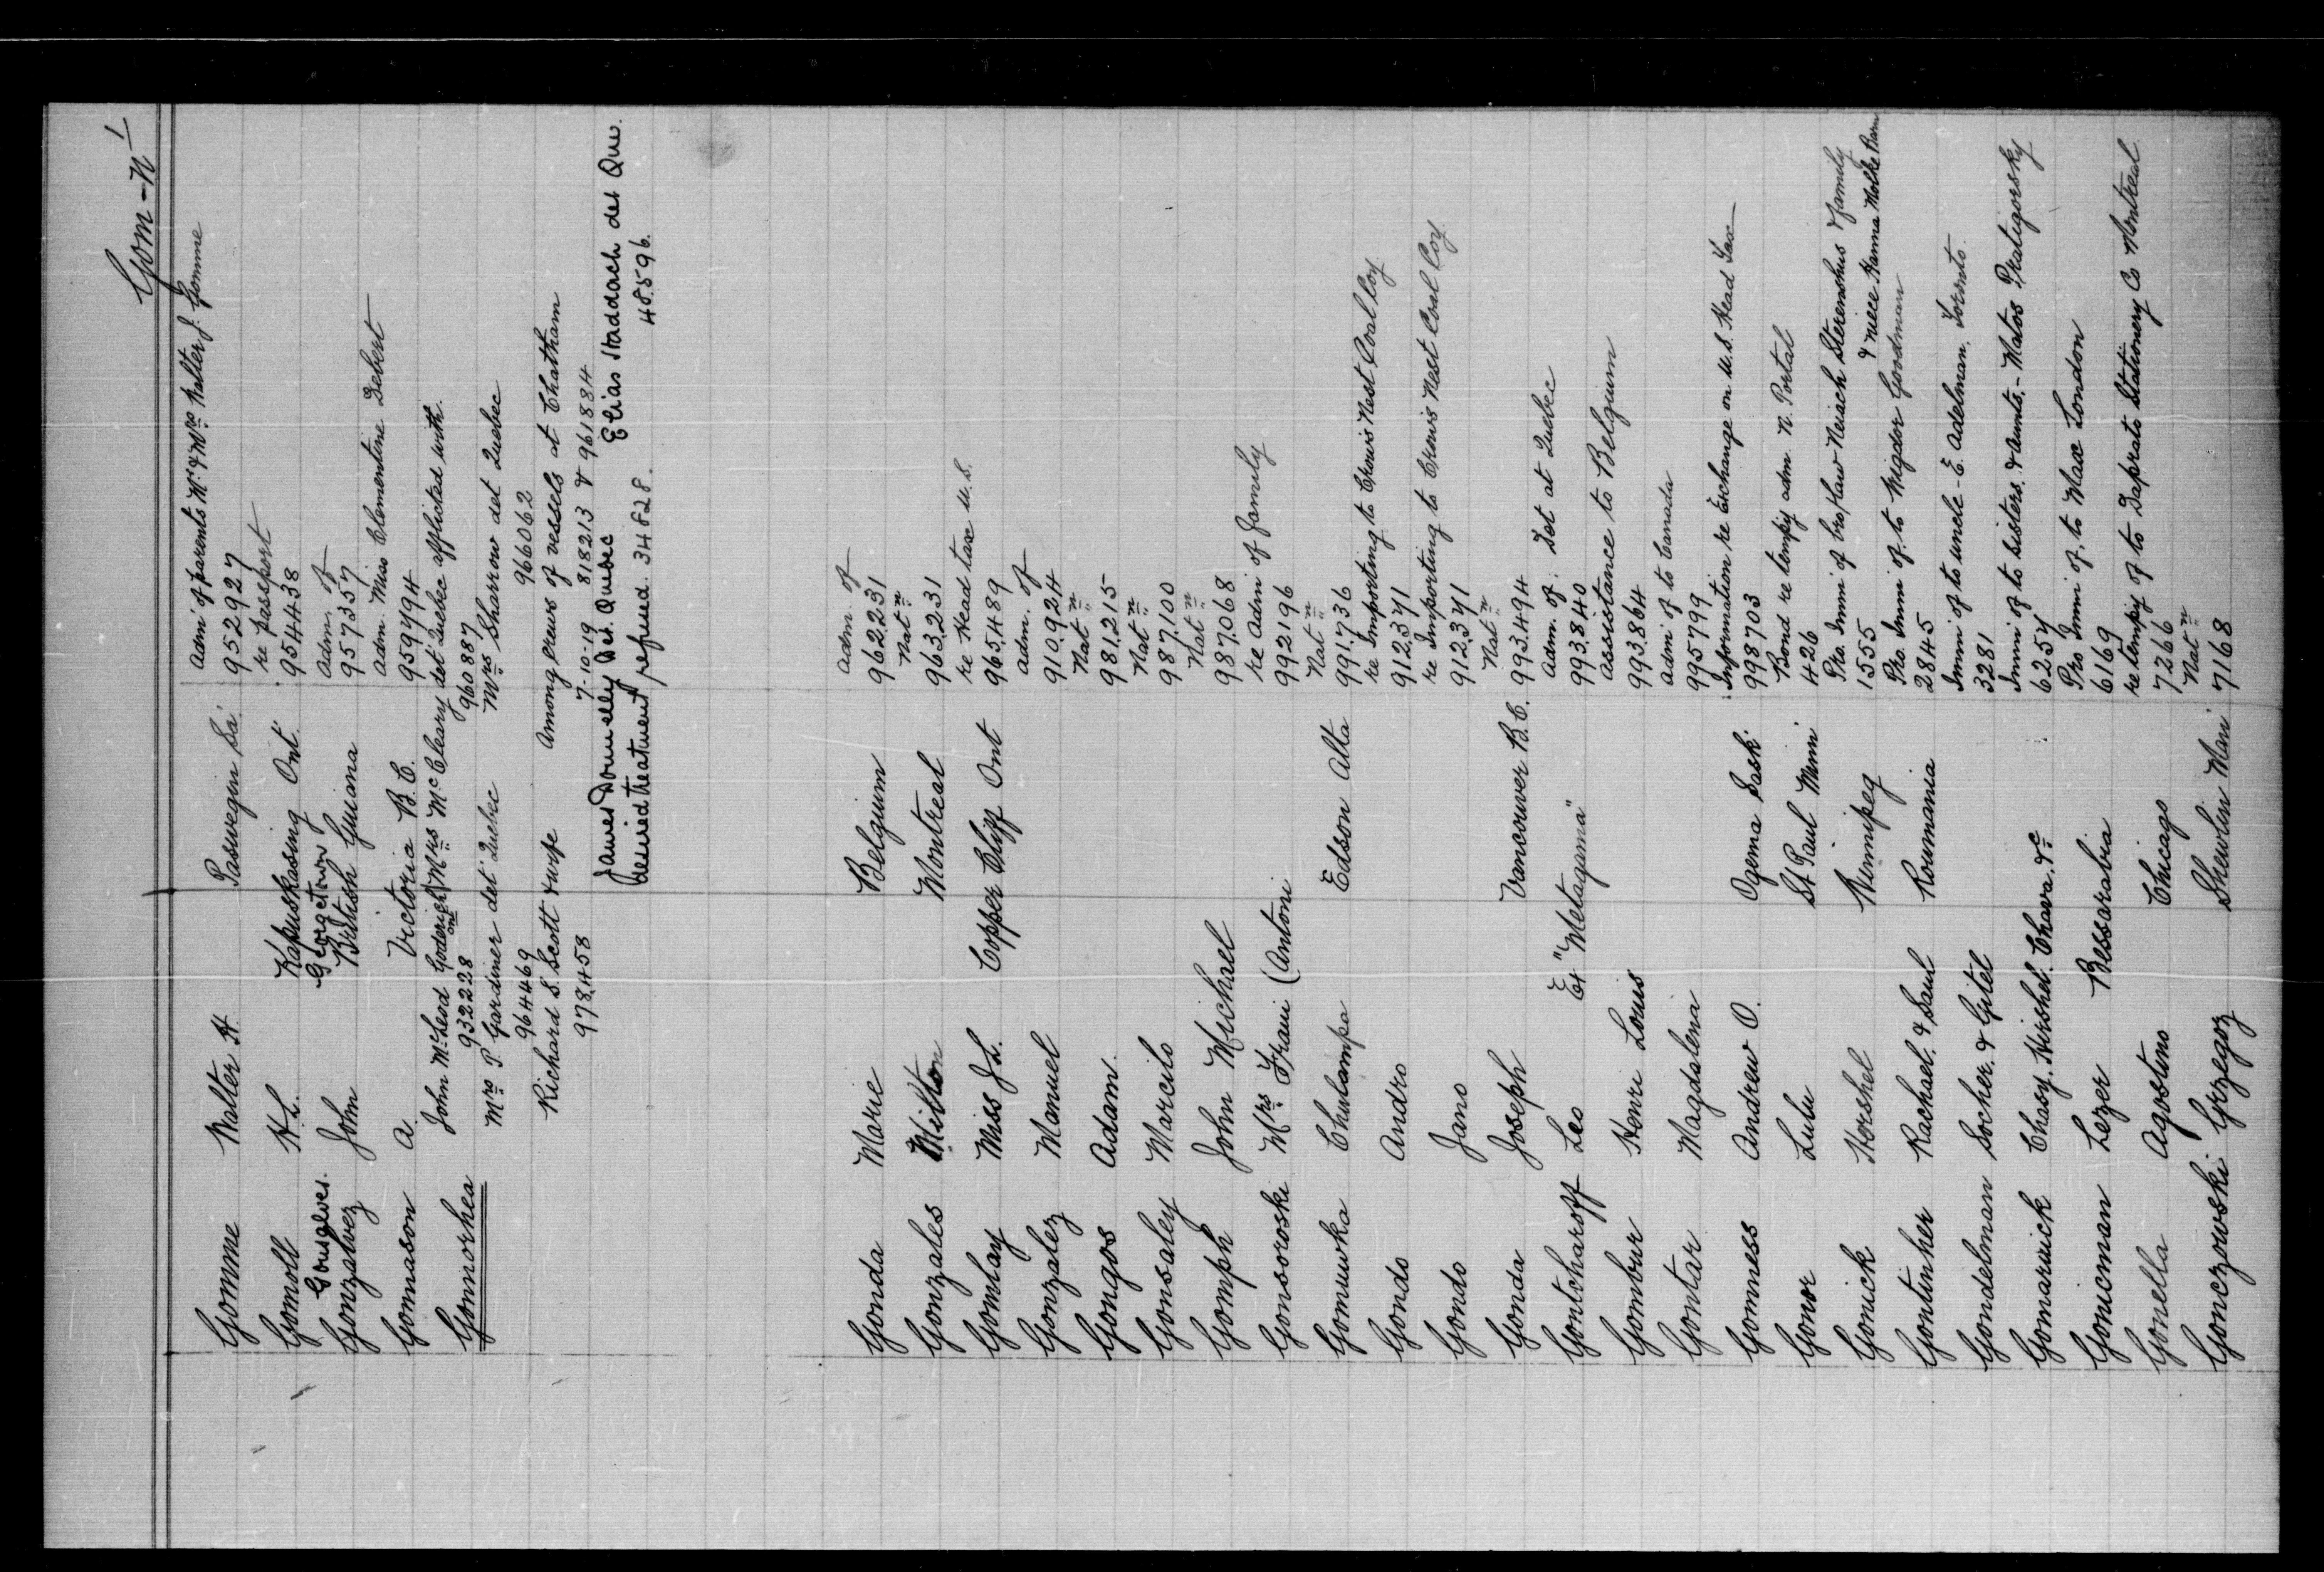 Gom-n 1
Adm of parents Mr & Mrs Walter J. Gomme
Gomme Walter H. Paswegin Sa. 952927
re passport
Gomoll H.L. Kapuskasing Ont. 954438
Gonsalves Georgetown Adm. of
Gonzalvez John British Guiana 957357
Adm. Miss Clementine Debert
Gomason A Victoria B.C. 959494
John McLeod Goderich Ont Mrs McCleary det Quebec afflicted with.
Gonnorhea 932228 960887
Mrs P Gardiner det Quebec Mrs Sharrow det Quebec
964469 966062
Richard S. Scott & wife Among crews of vessels at Chatham
978458 7-10-19 818213 & 961884
James Donnelly Det. Quebec Elias Staddach det Que.
desired treatment refused. 34528. 48596.
adm. of
Gonda Marie Belgium 962231
Nat n
Gonzales Milton Montreal 963231
re Head tax U.S.
Gomhay Miss J L. Copper Cliff Ont 965489
adm. of
Gonzalez Manuel 910924
Nat n
Gongos Adam. 981215
Nat n
Gonsaley Marcilo 987100
Nat n
Gomph John Michael 987068
re Adm of family
Gonsoroski Mrs Frani (Antoni 992196
Nat n
Gomuwka Chulampa Edson Alta 991736
re Importing to Crow's Nest Coal Coy.
Gondo Andro 912371
re Importing to Crow's Nest Coal Coy.
Gondo Jano 912371
Nat n
Gonda Joseph Vancouver B.C. 993494
adm. of. Det at Quebec
Gontcharoff Leo Ex "Metagama" 993840
assistance to Belgium
Gombur Henri Louis 993864
adm of to Canada
Gontar Magdalena 995799
Information re Exchange on U.S. Head Tax
Gomness Andrew O. Ogema Sask. 998703
Bond re tempy adm. N. Portal
Gonor Lulu St Paul Minn 426
Pro. Immi of bro/law Neiach Sterenshus & family
& niece Hanna Molke
Gonick Hershel Winnipeg 1555
Pro. Immi of. to Wigdor Goodman
Gontinher Rachael. & Saul Roumania 2845
Immi of to uncle - E. Adelman. Toronto.
Gondelman Socher. & Gitel 3281
Immi of to sisters. & Aunts. - Matos Pratigorsky
Gonarwick Chasy. Hirshel. Chava. &c 6257
Pro Immi of. to Max London
Gonicman Lezer Bessarabia 6169
re tempy of to Daprato Stationery Co Montreal
Gonella Agostino Chicago 7266
Nat n
Gonczowski Grzegoz Shevlin Man 7168